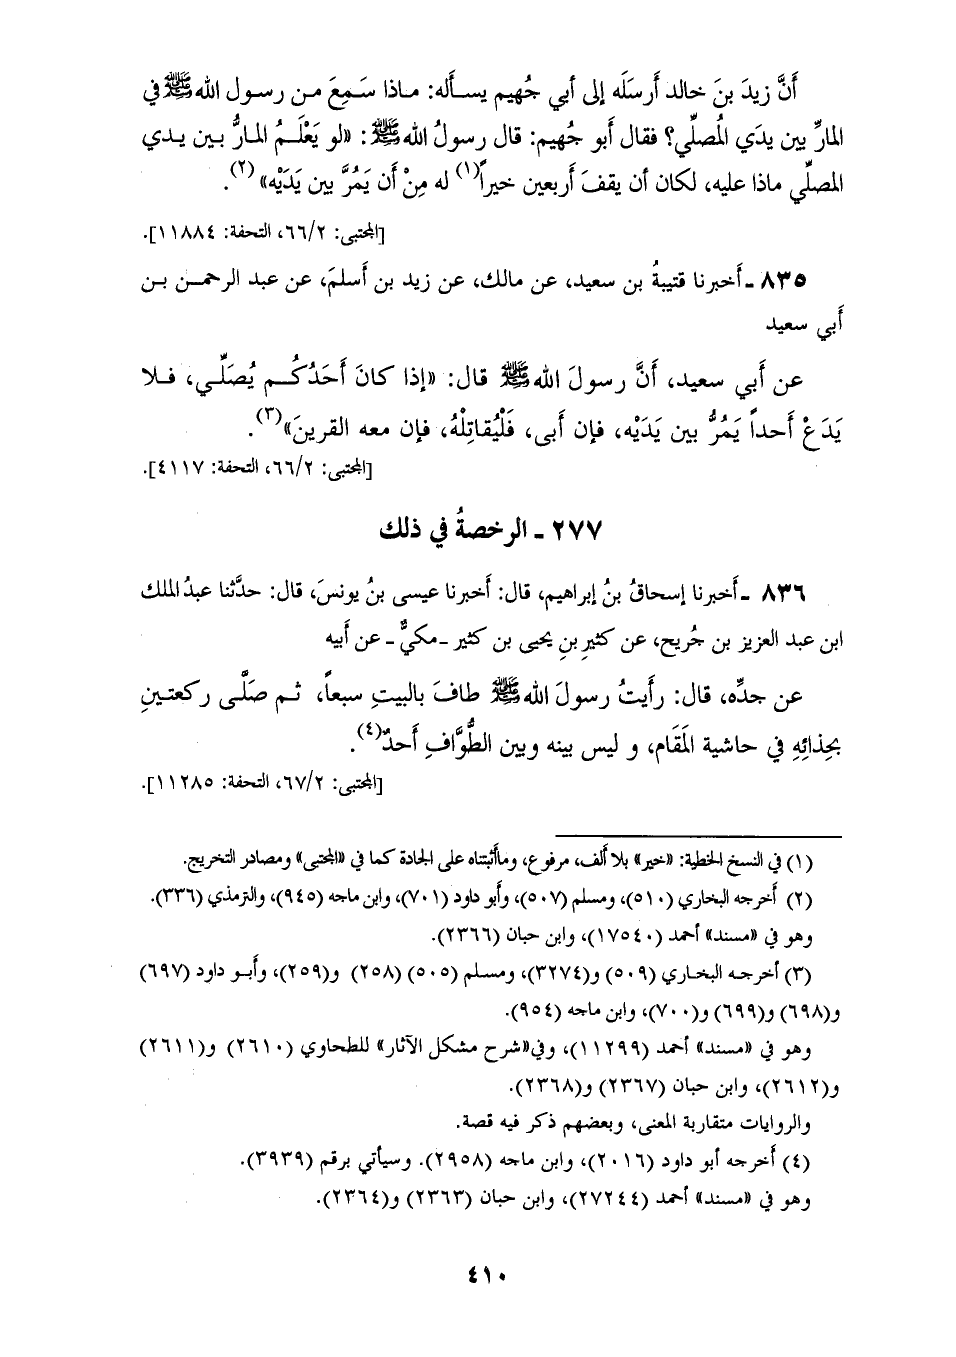 أَنَّ زيدَ بنَ خالد أَرسَلَه إلى أبي جُهيم يسـأَله: مـاذا سَـمِعَ مـن رسـول اللهﷺ في
المارِّ بين يدَي المُصلِّي؟ فقال أَبو جُهيم: قال رسولُ اللهﷺ: «لو يَعْلَـمُ المـارُّ بـين يـدي
المصلِّي ماذا عليه، لكان أن يقفَ أَربعين خيراً(١) له مِنْ أن يَمُرَّ بين يَدَيْه»(٢).
[المجتبى: ٦٦/٢، التحفة: ١١٨٨٤].
٨٣٥ ـ أَخبرنا قتيبةُ بن سعيد، عن مالك، عن زيد بن أَسلمَ، عن عبد الرحمـن بـن
أَبي سعيد
عن أَبي سعيد، أَنَّ رسولَ اللهﷺ قال: «إذا كانَ أَحَدُكُـم يُصَلِّـي، فـلا
يَدَعْ أَحداً يَمُرُّ بين يَدَيْه، فإن أَبى، فَلْيُقاتِلْهُ، فإن معه القرينَ»(٣).
[المجتبى: ٦٦/٢، التحفة: ٤١١٧].
٢٧٧ ـ الرخصةُ في ذلك
٨٣٦ ـ أَخبرنا إسحاقُ بنُ إبراهيم، قال: أَخبرنا عيسى بنُ يونسَ، قال: حدَّثنا عبدُ الملك
ابن عبد العزيز بن جُريج، عن كثيرِ بنِ يحيى بن كثير ـ مكيٌّ ـ عن أَبيه
عن جدِّه، قال: رأَيتُ رسولَ اللهﷺ طافَ بالبيتِ سبعاً، ثـم صلَّـى ركعتـينِ
بحِذائِهِ في حاشية المَقَام، و ليس بينه وبين الطُّوَّافِ أَحدٌ(٤).
[المجتبى: ٦٧/٢، التحفة: ١١٢٨٥].
(١) في النسخ الخطية: «خير» بلا ألف، مرفوع، وماأثبتناه على الجادة كما في «المجتبى» ومصادر التخريج.
(٢) أخرجه البخاري (٥١٠)، ومسلم (٥٠٧)، وأبو داود (٧٠١)، وابن ماجه (٩٤٥)، والترمذي (٣٣٦).
وهو في «مسند» أحمد (١٧٥٤٠)، وابن حبان (٢٣٦٦).
(٣) أخرجـه البخـاري (٥٠٩) و(٣٢٧٤)، ومسـلم (٥٠٥) (٢٥٨) و(٢٥٩)، وأبـو داود (٦٩٧)
و(٦٩٨) و(٦٩٩) و(٧٠٠)، وابن ماجه (٩٥٤).
وهو في «مسند» أحمد (١١٢٩٩)، وفي«شرح مشكل الآثار» للطحاوي (٢٦١٠) و(٢٦١١)
و(٢٦١٢)، وابن حبان (٢٣٦٧) و(٢٣٦٨).
والروايات متقاربة المعنى، وبعضهم ذكر فيه قصة.
(٤) أخرجه أبو داود (٢٠١٦)، وابن ماجه (٢٩٥٨). وسيأتي برقم (٣٩٣٩).
وهو في «مسند» أحمد (٢٧٢٤٤)، وابن حبان (٢٣٦٣) و(٢٣٦٤).
٤١٠